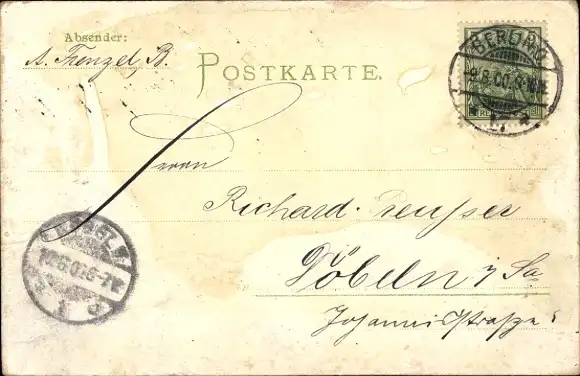 Absender:
A. Frenzel, B.
POSTKARTE.
BERLIN O
9.8.00.
Herrn
Richard
Döbeln i/Sa
Johannisstrasse